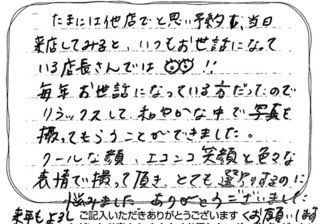 たまには他店でと思い予約し、当日
来店してみると、いつもお世話になって
いる店長さんでは!!
毎年お世話になっている方だったので
リラックスして和やかな中で写真を
撮ってもらうことができました。
クールな顔、ニコニコ笑顔と色々な
表情で撮って頂き、とても選ぶのに
悩みました ありがとうございました
来年もよろしくお願いします
ご記入いただきありがとうございます